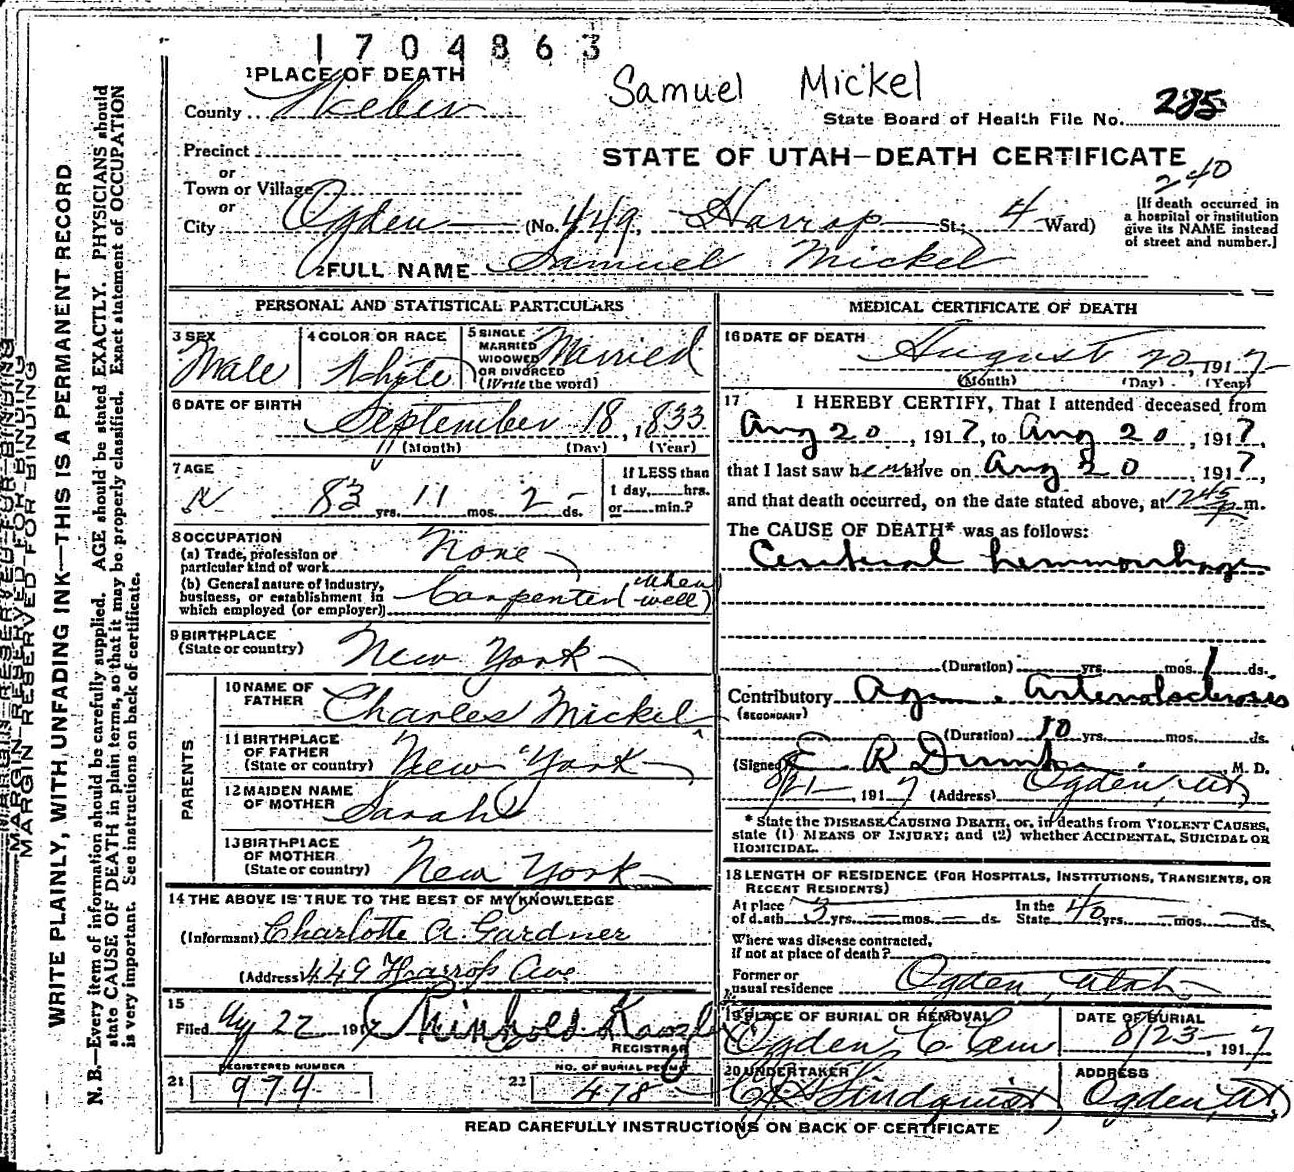 1704863
1 PLACE OF DEATH
Samuel Mickel
County Weber
State Board of Health File No. 285
Precinct
STATE OF UTAH—DEATH CERTIFICATE
or
240
Town or Village
or
City Ogden (No. 449, Harrop St.; 4 Ward)
[If death occurred in a hospital or institution give its NAME instead of street and number.]
2 FULL NAME Samuel Mickel
PERSONAL AND STATISTICAL PARTICULARS
3 SEX Male
4 COLOR OR RACE White
5 SINGLE MARRIED WIDOWED OR DIVORCED (Write the word) Married
6 DATE OF BIRTH
September 18, 1833
(Month) (Day) (Year)
7 AGE
83 yrs. 11 mos. 2 ds.
If LESS than 1 day,....hrs. or....min.?
8 OCCUPATION
(a) Trade, profession or particular kind of work None
(b) General nature of industry, business, or establishment in which employed (or employer) Carpenter (when well)
9 BIRTHPLACE (State or country) New York
PARENTS
10 NAME OF FATHER Charles Mickel
11 BIRTHPLACE OF FATHER (State or country) New York
12 MAIDEN NAME OF MOTHER Sarah
13 BIRTHPLACE OF MOTHER (State or country) New York
14 THE ABOVE IS TRUE TO THE BEST OF MY KNOWLEDGE
(Informant) Charlotte A Gardner
(Address) 449 Harrop Ave
15
Filed Aug 22 1917
REGISTRAR
21 REGISTERED NUMBER 974
22 NO. OF BURIAL PERMIT 478
MEDICAL CERTIFICATE OF DEATH
16 DATE OF DEATH
August 20, 1917
(Month) (Day) (Year)
17 I HEREBY CERTIFY, That I attended deceased from
Aug 20, 1917, to Aug 20, 1917,
that I last saw h alive on Aug 20, 1917,
and that death occurred, on the date stated above, at 1245 p m.
The CAUSE OF DEATH* was as follows:
Cerebral hemorrhage
(Duration) yrs. mos. 1 ds.
Contributory Age Arteriosclerosis
(SECONDARY)
(Duration) 10 yrs. mos. ds.
(Signed) E. R. M. D.
8/21, 1917 (Address) Ogden, Ut
* State the DISEASE CAUSING DEATH, or, in deaths from VIOLENT CAUSES,
state (1) MEANS OF INJURY; and (2) whether ACCIDENTAL, SUICIDAL OR
HOMICIDAL.
18 LENGTH OF RESIDENCE (FOR HOSPITALS, INSTITUTIONS, TRANSIENTS, OR RECENT RESIDENTS)
At place of death 3 yrs. — mos. — ds. In the State 40 yrs. — mos. — ds.
Where was disease contracted, If not at place of death?
Former or usual residence Ogden, Utah
19 PLACE OF BURIAL OR REMOVAL Ogden C Cem
DATE OF BURIAL 8/23, 1917
20 UNDERTAKER Lindquist
ADDRESS Ogden, Ut
READ CAREFULLY INSTRUCTIONS ON BACK OF CERTIFICATE
MARGIN RESERVED FOR BINDING
WRITE PLAINLY, WITH UNFADING INK—THIS IS A PERMANENT RECORD
N. B.—Every item of information should be carefully supplied. AGE should be stated EXACTLY. PHYSICIANS should
state CAUSE OF DEATH in plain terms, so that it may be properly classified. Exact statement of OCCUPATION
is very important. See instructions on back of certificate.